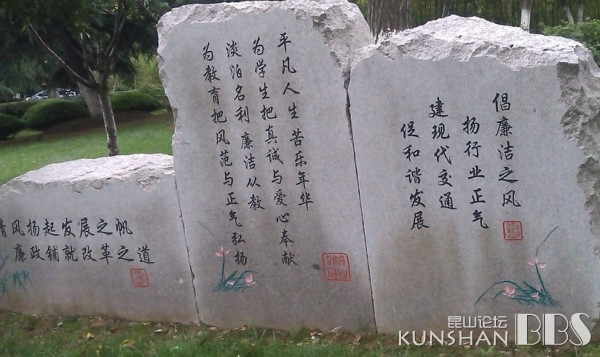 清风扬起发展之帆
廉政铺就改革之道
平凡人生 苦乐年华
为学生把真诚与爱心奉献
淡泊名利 廉洁从教
为教育把风范与正气弘扬
倡廉洁之风
扬行业正气
建现代交通
促和谐发展
昆山论坛
KUNSHAN BBS